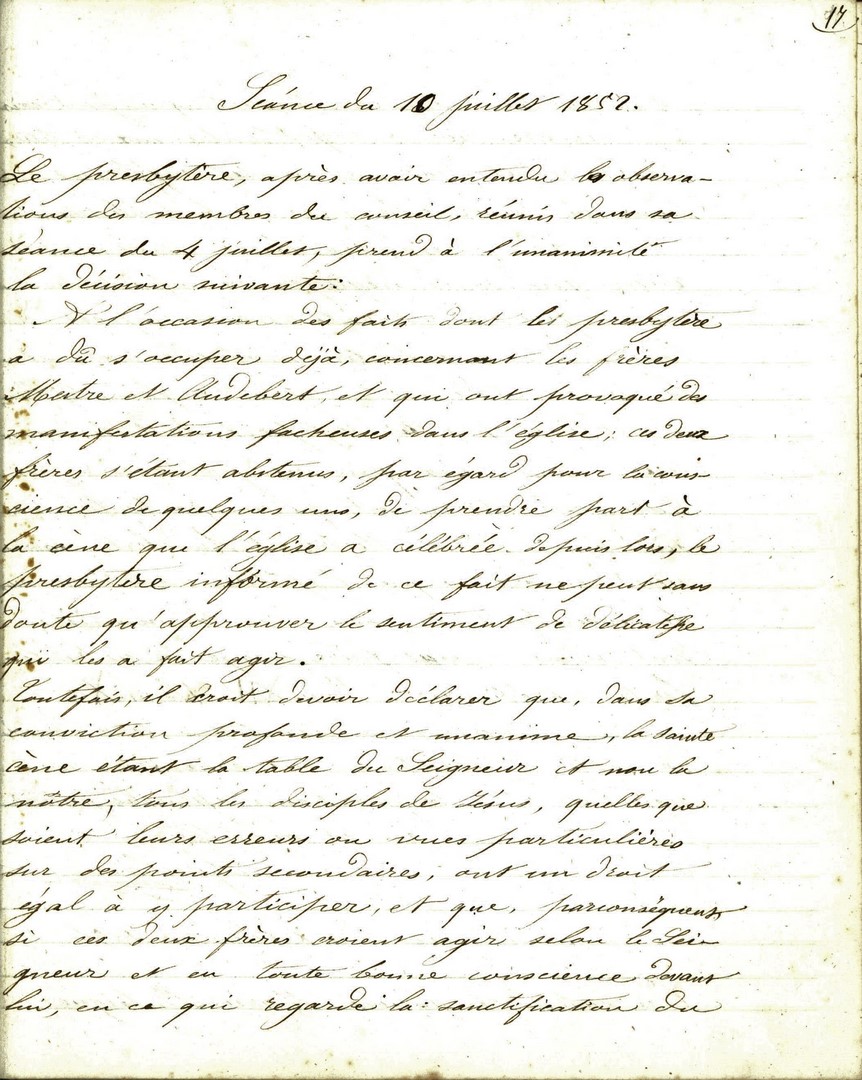 17
Séance du 10 juillet 1852.
Le presbytère, après avoir entendu les observa-
tions des membres du conseil, réunis dans sa
séance du 4 juillet, prend à l'unanimité
la décision suivante:
A l'occasion des faits dont les presbytère
a dû s'occuper déjà, concernant les frères
Mestre et Audebert, et qui ont provoqué des
manifestations facheuses dans l'église; ces deux
frères s'étant abstenus, par égard pour la cons-
cience de quelques uns, de prendre part à
la cène que l'église a célébrée depuis lors, le
presbytère informé de ce fait ne peut sans
doute qu'approuver le sentiment de délicatesse
qui les a fait agir.
Toutefois, il croit devoir déclarer que, dans sa
conviction profonde et unanime, la sainte
cène étant la table du Seigneur et non la
nôtre, tous les disciples de Jésus, quelles que
soient leurs erreurs ou vues particulières
sur des points secondaires, ont un droit
égal à y participer, et que, parconséquent
si ces deux frères croient agir selon le Sei-
gneur et en toute bonne conscience devant
lui, en ce qui regarde la sanctification du